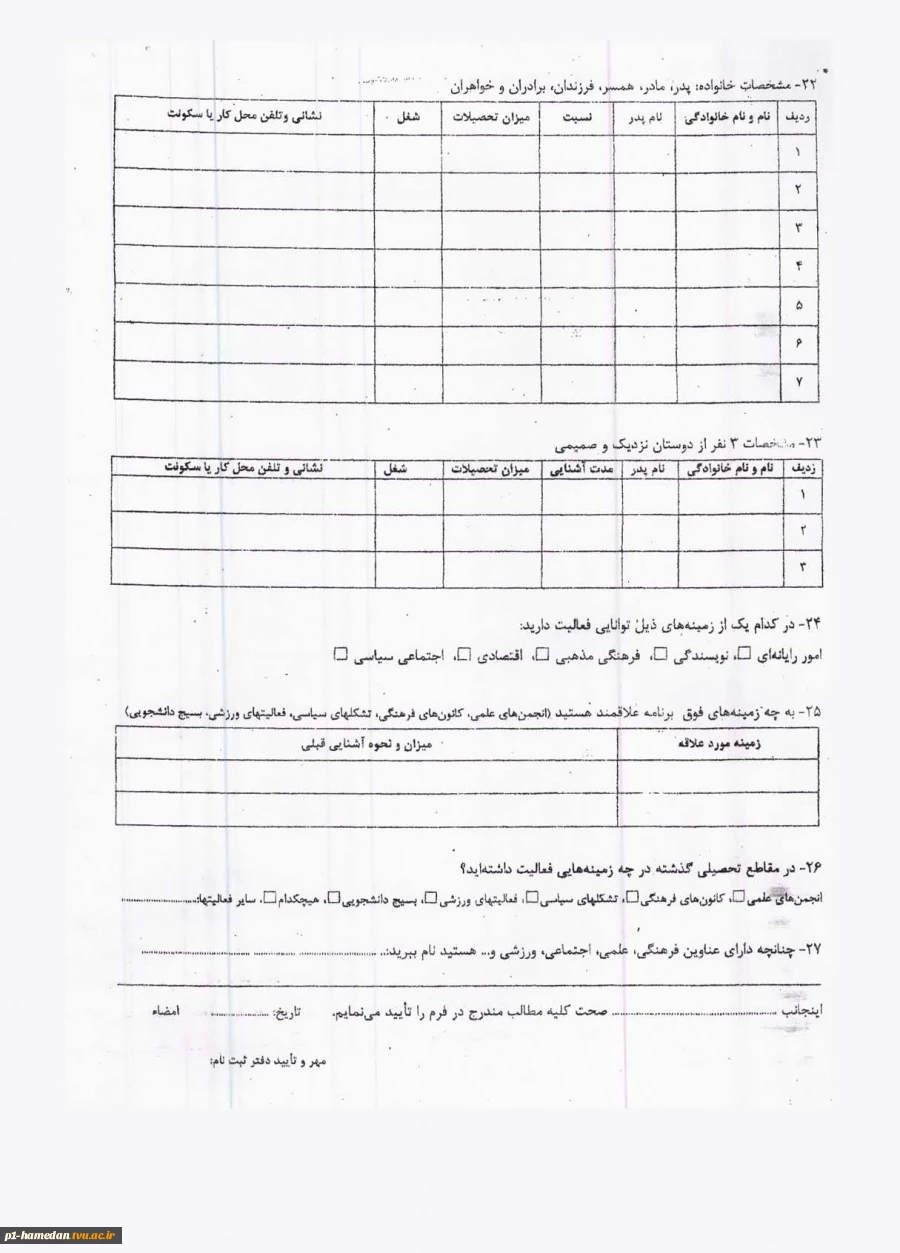 ۲۲- مشخصات خانواده: پدر، مادر، همسر، فرزندان، برادران و خواهران
ردیف نام و نام خانوادگی نام پدر نسبت میزان تحصیلات شغل نشانی وتلفن محل کار یا سکونت
۱
۲
۳
۴
۵
۶
۷
۲۳- مشخصات ۳ نفر از دوستان نزدیک و صمیمی
ردیف نام و نام خانوادگی نام پدر مدت آشنایی میزان تحصیلات شغل نشانی و تلفن محل کار یا سکونت
۱
۲
۳
۲۴- در کدام یک از زمینه‌های ذیل توانایی فعالیت دارید:
امور رایانه‌ای □، نویسندگی □، فرهنگی مذهبی □، اقتصادی □، اجتماعی سیاسی □
۲۵- به چه زمینه‌های فوق برنامه علاقمند هستید (انجمن‌های علمی، کانون‌های فرهنگی، تشکلهای سیاسی، فعالیتهای ورزشی، بسیج دانشجویی)
زمینه مورد علاقه میزان و نحوه آشنایی قبلی
۲۶- در مقاطع تحصیلی گذشته در چه زمینه‌هایی فعالیت داشته‌اید؟
انجمن‌های علمی □، کانون‌های فرهنگی □، تشکلهای سیاسی □، فعالیتهای ورزشی □، بسیج دانشجویی □، هیچکدام □، سایر فعالیتها:....................
۲۷- چنانچه دارای عناوین فرهنگی، علمی، اجتماعی، ورزشی و... هستید نام ببرید:.................... .................... ....................
اینجانب ........................................ صحت کلیه مطالب مندرج در فرم را تأیید می‌نمایم. تاریخ: ............... امضاء
مهر و تأیید دفتر ثبت نام:
p1-hamedan.tvu.ac.ir